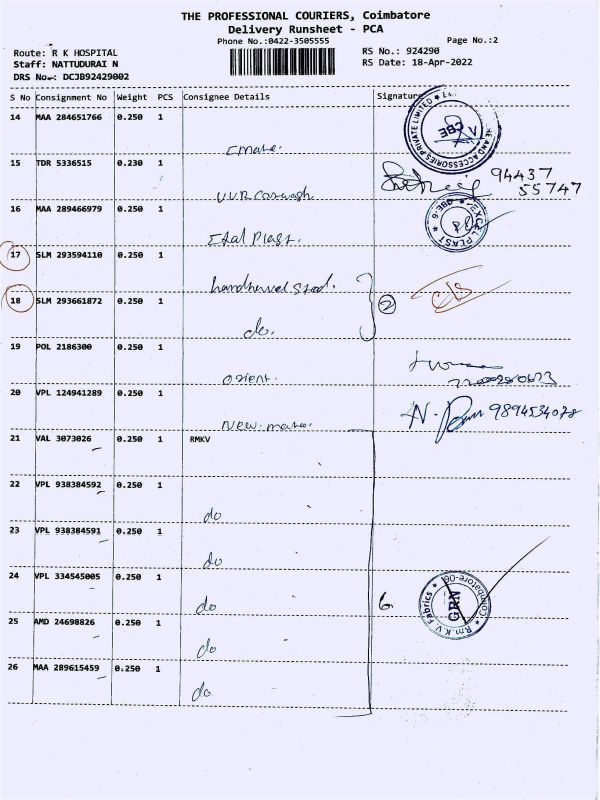 THE PROFESSIONAL COURIERS, Coimbatore
Delivery Runsheet - PCA
Phone No.:0422-3505555
Page No.:2
Route: R K HOSPITAL
RS No.: 924290
Staff: NATTUDURAI N
RS Date: 18-Apr-2022
DRS No.: DCJB92429002
S No Consignment No Weight PCS Consignee Details Signature
14 MAA 284651766 0.250 1
CBE
15 TDR 5336515 0.230 1
94437
55747
VVR Carwash
16 MAA 289466979 0.250 1
EXCEL PLAST
17 SLM 293594110 0.250 1
18 SLM 293661872 0.250 1
2
do.
19 POL 2186300 0.250 1
orient.
20 VPL 124941289 0.250 1
N. 9894534078
New.
21 VAL 3073026 0.250 1 RMKV
22 VPL 938384592 0.250 1
do
23 VPL 938384591 0.250 1
do
24 VPL 334545005 0.250 1
do
6.
Rm.K.V. Fabrics
GRN
25 AMD 24698826 0.250 1
do
26 MAA 289615459 0.250 1
do